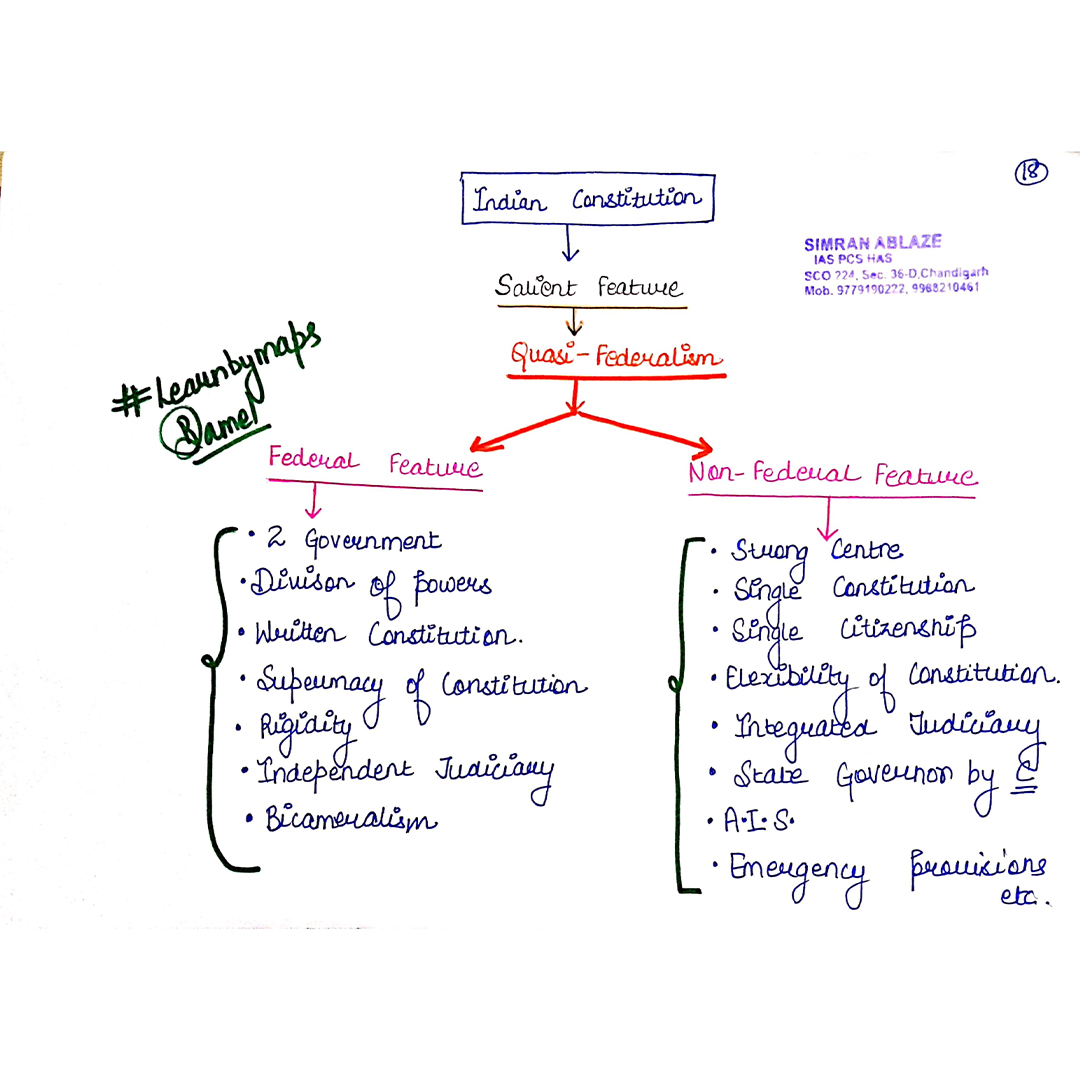 18
Indian Constitution
SIMRAN ABLAZE
IAS PCS HAS
SCO 224, Sec. 36-D, Chandigarh
Mob. 9779190222, 9988210461
Salient Feature
Quasi-Federalism
#Learnbymaps
Bamel
Federal Feature
• 2 Government
• Divison of powers
• Written Constitution.
• Supermacy of Constitution
• Rigidity
• Independent Judiciary
• Bicameralism
Non-Federal Feature
• Strong Centre
• Single Constitution
• Single Citizenship
• Flexibility of Constitution.
• Integrated Judiciary
• State Governor by C
• A.I.S.
• Emergency provisions
etc.